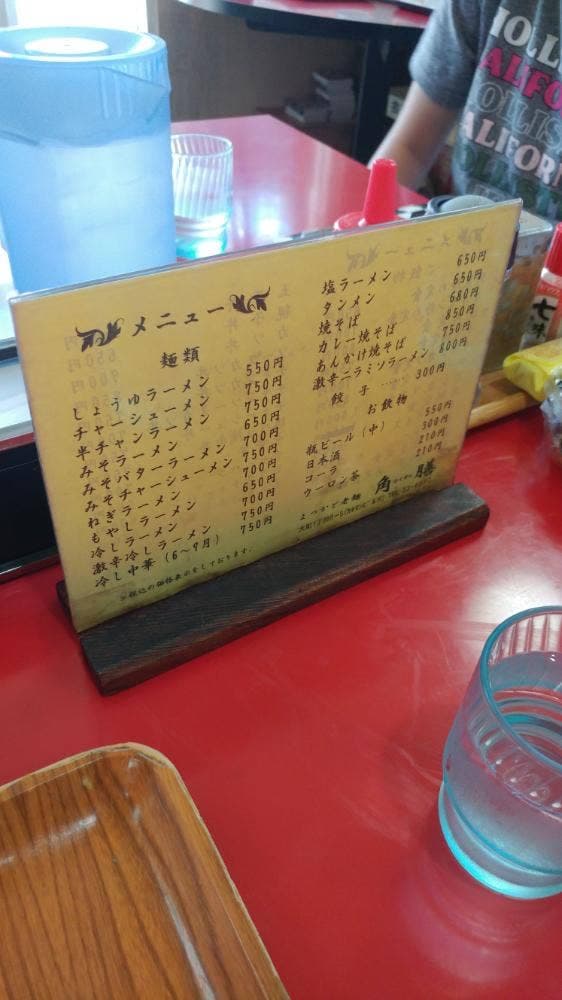 メニュー
麺類
しょうゆラーメン 550円
チャーシューメン 750円
半チャンラーメン 750円
みそラーメン 650円
みそバターラーメン 700円
みそチャーシューメン 750円
ねぎラーメン 650円
もやしラーメン 700円
冷しラーメン 700円
激辛冷しラーメン 750円
冷し中華(6〜9月) 750円
※税込の価格表示をしております。
塩ラーメン 650円
タンメン 650円
焼そば 680円
カレー焼そば 850円
あんかけ焼そば 750円
激辛ニラミソラーメン 800円
餃子 …… 300円
お飲物
瓶ビール(中) 550円
日本酒 300円
コーラ 210円
ウーロン茶 210円
角膳
七味